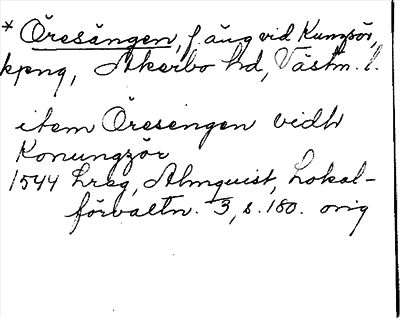 * Öresängen, f. äng vid Kungsör,
kpng, Åkerbo hd, Västm. l.
item Öresengen vidh
Konungzör
1544 Lrsg, Almquist, Lokal-
förvaltn. 3, s. 180. orig